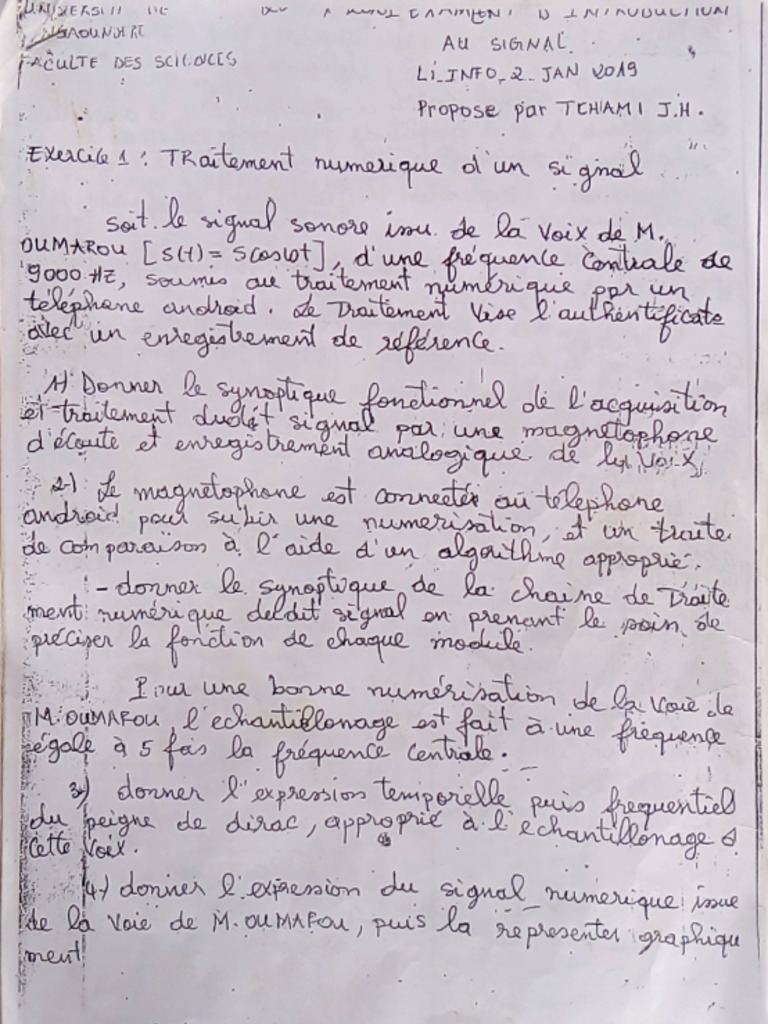 UNIVERSITE DE
NGAOUNDERE
FACULTE DES SCIENCES
EXAMEN D'INTRODUCTION
AU SIGNAL
Li_INFO_2_JAN 2019
Propose par TCHAMI J.H.
Exercice 1 : TRaitement numerique d'un signal
soit le signal sonore issu de la voix de M.
OUMAROU [S(t) = 5cosωt], d'une fréquence Centrale de
9000 HZ, soumis au traitement numérique par un
téléphone android. Le Traitement Vise l'authentificate
avec un enregistrement de référence.
1-) Donner le synoptique fonctionnel de l'acquisition
et traitement dudit signal par une magnétophone
d'écoute et enregistrement analogique de la Voix
2-) Le magnetophone est connecté au téléphone
android pour subir une numerisation, et un traite
de comparaison à l'aide d'un algorithme approprié.
- donner le synoptique de la chaine de Traite
ment numérique dudit signal en prenant le soin de
préciser la fonction de chaque module.
Pour une bonne numérisation de la voie de
M. OUMAROU, l'echantillonage est fait à une fréquence
égale à 5 fois la fréquence centrale.
3-) donner l'expression temporelle puis frequentiel
du peigne de dirac, approprié à l'echantillonage d
cette voix.
4-) donner l'expression du signal numerique issue
de la voie de M. OUMAROU, puis la representer graphique
ment